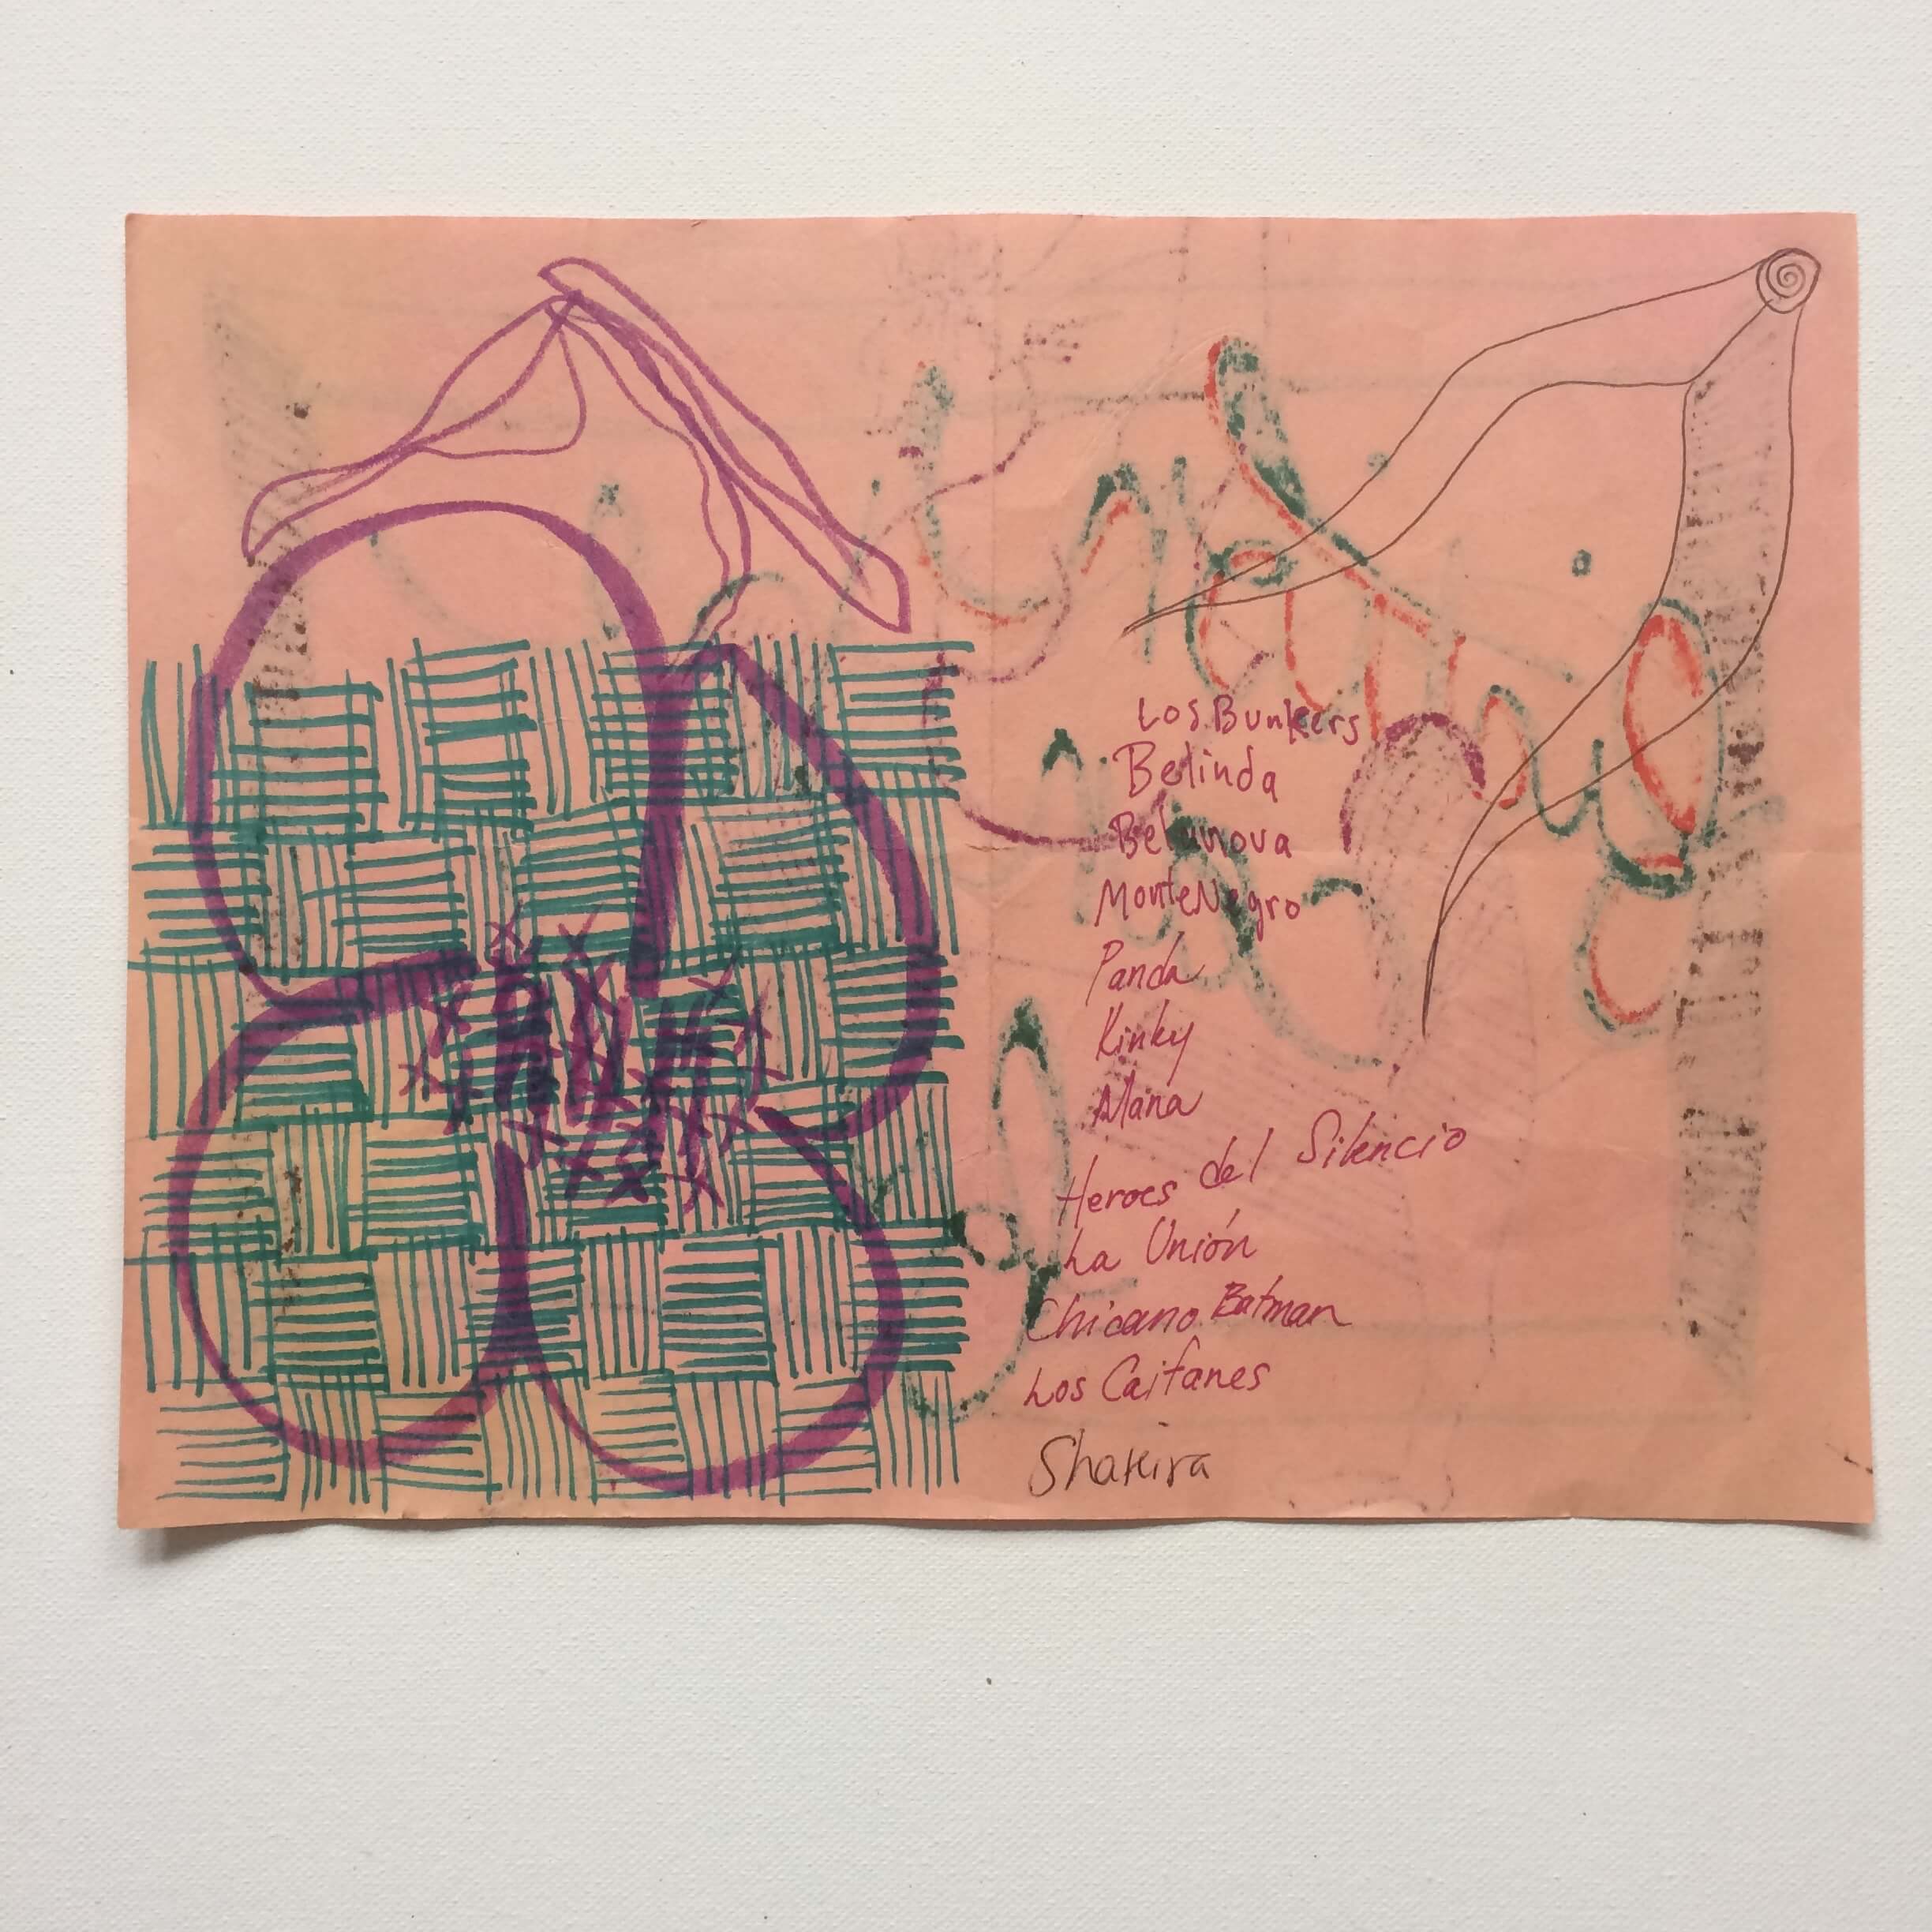 Los Bunkers
Belinda
Belanova
MonteNegro
Panda
Kinky
Mana
Heroes del Silencio
La Unión
Chicano Batman
Los Caifanes
Shakira